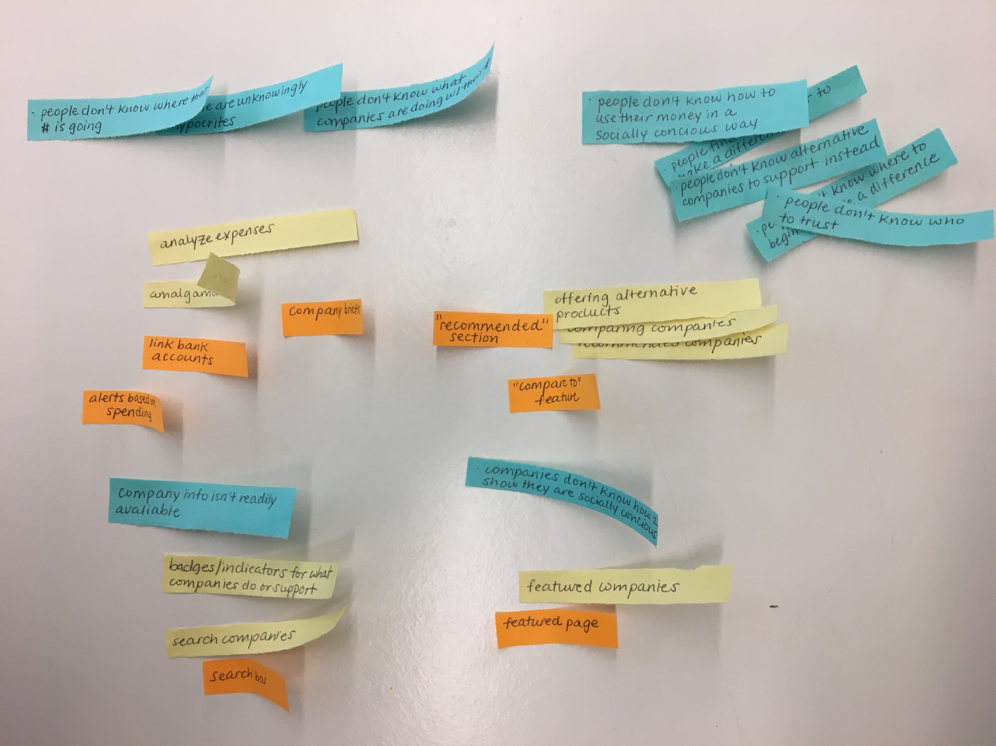 · people don't know where their
$ is going
are unknowingly
hypocrites
people don't know what
companies are doing w/ their $
· people don't know how to
use their money in a
socially concious way
to
people find
make a difference
people don't know alternative
companies to support instead
know where to
a difference
begin
· people don't know who
to trust
analyze expenses
amalgama
company briefs
link bank
accounts
alerts based on
spending
"recommended"
section
offering alternative
products
comparing companies
recommended companies
"compare to"
feature
company info isn't readily
avaliable
· companies don't know how 2
show they are socially concious
badges/indicators for what
companies do or support
search companies
search bar
featured companies
featured page